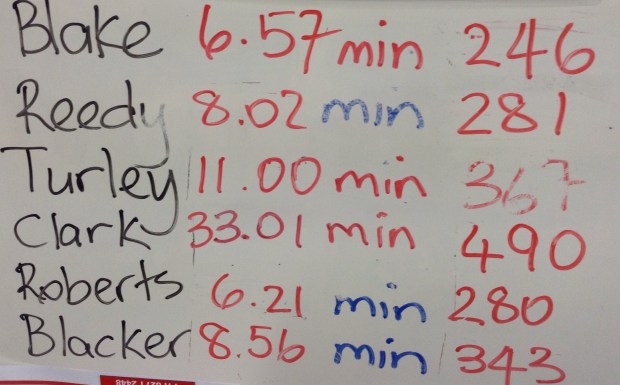 Blake 6.57 min 246
Reedy 8.02 min 281
Turley 11.00 min 367
Clark 33.01 min 490
Roberts 6.21 min 280
Blacker 8.56 min 343